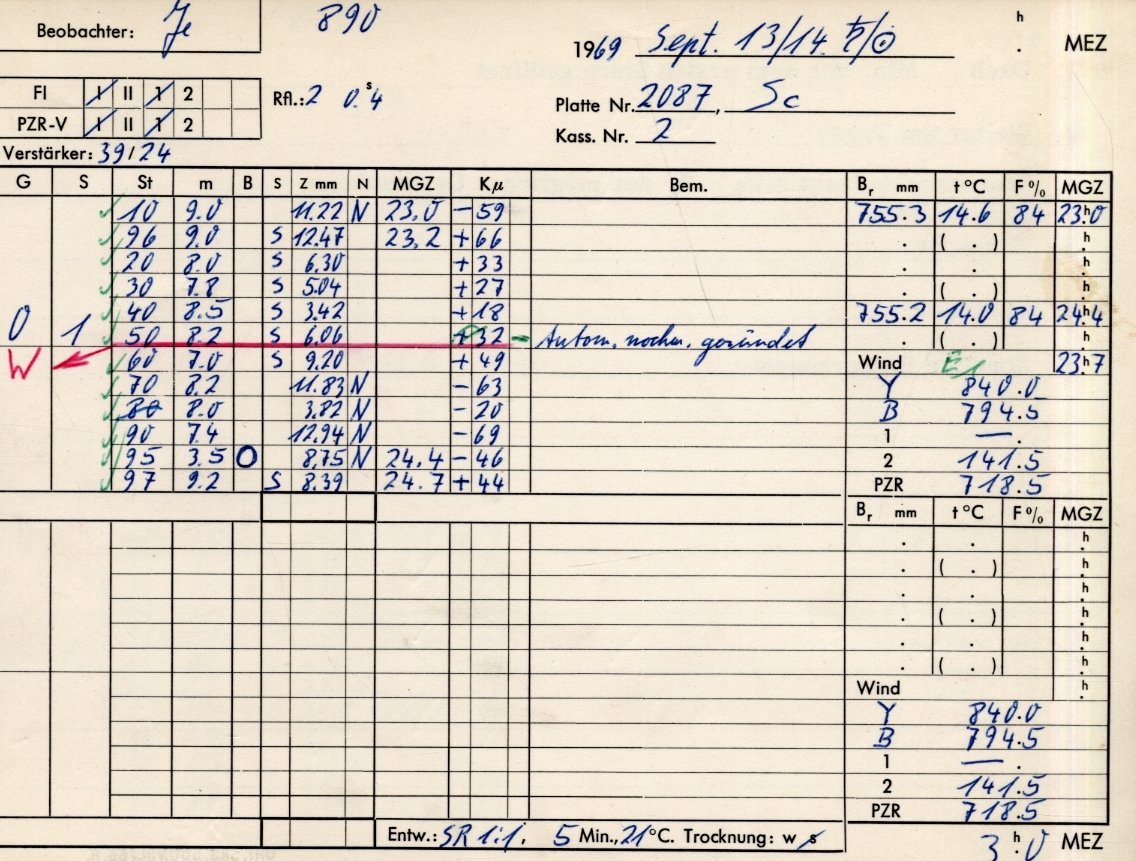 Beobachter: Je 890
1969 Sept. 13/14. ♄/☉ h . MEZ
FI I II 1 2 Rfl.: 2 0.ˢ4
Platte Nr. 2087, Sc
PZR-V I II 1 2
Kass. Nr. 2
Verstärker: 39/24
G S St m B S Z mm N MGZ Kμ Bem. Br mm t °C F % MGZ
✓ 10 9.0 11.22 N 23,0 - 59 755.3 14.6 84 23ʰ0
✓ 96 9.0 S 12.47 23,2 + 66 . ( . ) h
✓ 20 8.0 S 6.30 + 33 . . h
✓ 30 7.8 S 5.04 + 27 . ( . ) h
✓ 40 8.5 S 3.42 + 18 755.2 14.0 84 24ʰ4
0 1 ✓ 50 8.2 S 6.06 + 32 - Autom. nochm. gezündet . ( . ) h
W ✓ 60 7.0 S 9.20 + 49 Wind E1 23ʰ7
✓ 70 8.2 11.83 N - 63 Y 840.0
✓ 80 8.0 3.82 N - 20 B 794.5
✓ 90 7.4 12.94 N - 69 1 — .
✓ 95 3.5 O 8.75 N 24.4 - 46 2 141.5
✓ 97 9.2 S 8.39 24.7 + 44 PZR 718.5
Br mm t °C F % MGZ
. . h
. ( . ) h
. . h
. ( . ) h
. . h
. ( . ) h
Wind h
Y 840.0
B 794.5
1 — .
2 141.5
PZR 718.5
Entw.: SR 1:1, 5 Min., 21 °C. Trocknung: w s 3ʰ.0 MEZ